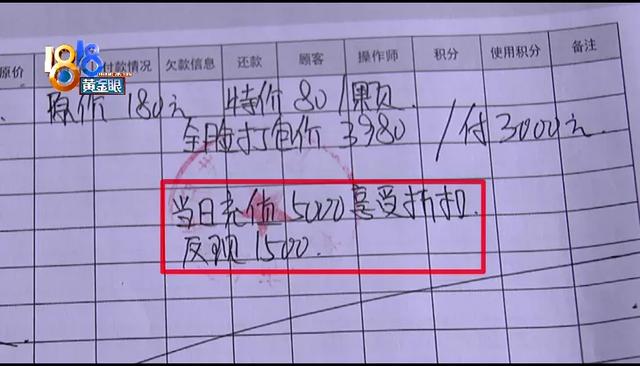 1818
黄金眼
原价 付款情况 欠款信息 还款 顾客 操作师 积分 使用积分 备注
原价 180元 特价 80/颗
全脸打包价 3980 /付3000元.
当日充值 5000 享受折扣.
反现 1500.